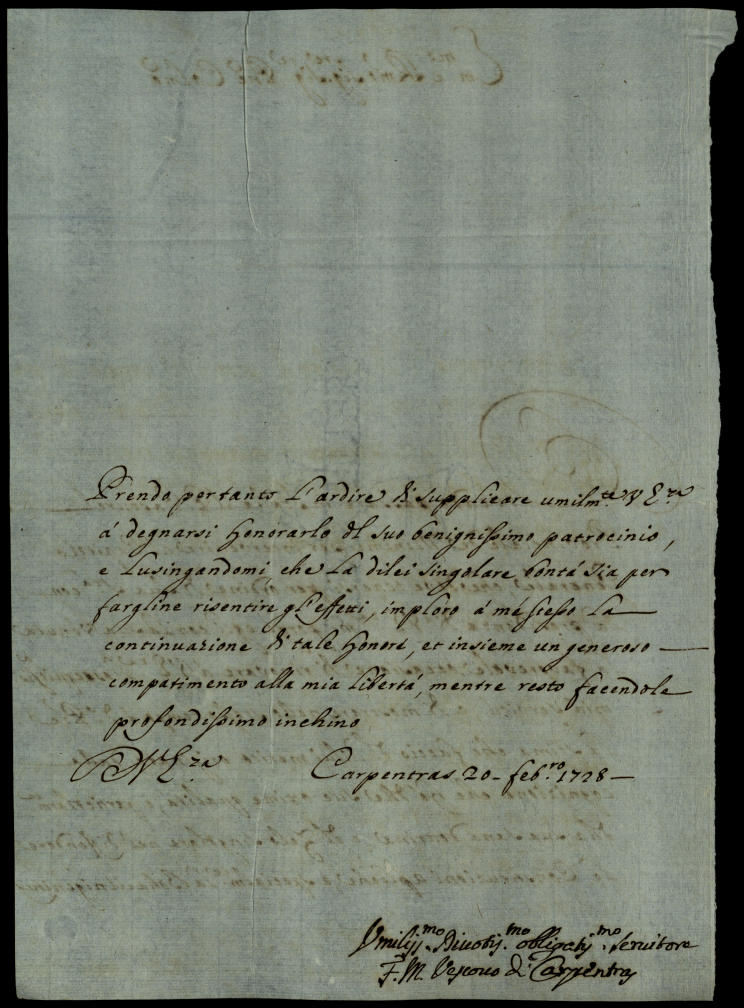 Prendo per tanto l'ardire di supplicare umilm.te V E.za
á degnarsi honorarlo del suo benignissimo patrocinio,
e lusingandomi, che la di lei singolare bontá sia per
fargline risentire gl'effetti, imploro á mé stesso la
continuazione di tale honore, et insieme un generoso
compatimento alla mia libertá, mentre resto facendole
profondissimo inchino
V E.za Carpentras 20 - feb.ro 1728 -
Umiliss.mo Divotis.mo obligatis.mo Servitore
F. M. Vescovo di Carpentras